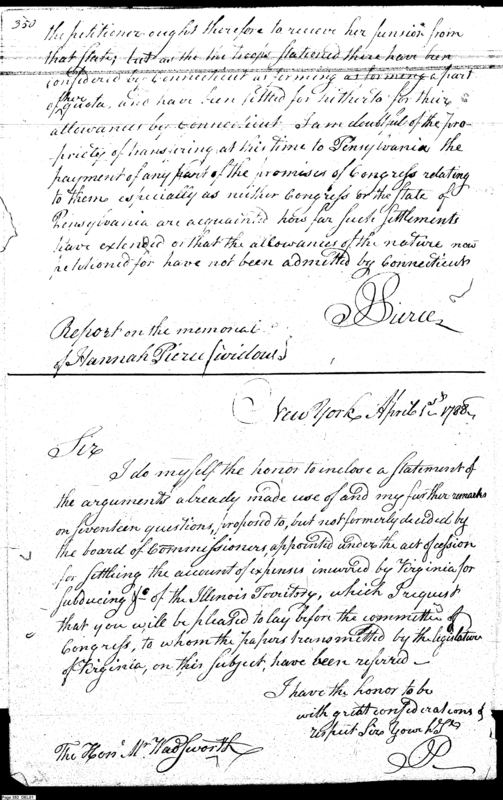 350
the petitioner ought therefore to receive her pension from
that State, but as the two troops stationed there have been
considered by Connecticut as forming a part
of their quota, and have been settled for hitherto for their
allowances by Connecticut. I am doubtful of the pro-
priety of transfering, at this time to Pensylvania the
payment of any part of the promises of Congress relating
to them especially as neither Congress or the State of
Pennsylvania are acquainted how far such settlements
have extended or that the allowances of the nature now
petitioned for have not been admitted by Connecticut
J Pierce
Report on the memorial
of Hannah Pierce (widow)
New York April 1st 1788
Sir
I do myself the honor to inclose a statement of
the arguments already made use of and my further remarks
on seventeen questions, proposed to, but not formerly decided by
the board of Commissioners, appointed under the act of cession
for settling the account of expenses incurred by Virginia for
subducing &c of the Illinois Territory, which I request
that you will be pleased to lay before the committee of
Congress, to whom the papers transmitted by the legislature
of Virginia, on this subject, have been referred
I have the honor to be
with great consideration &
respect Sir Your hble
The Honl Mr Wadsworth
JP